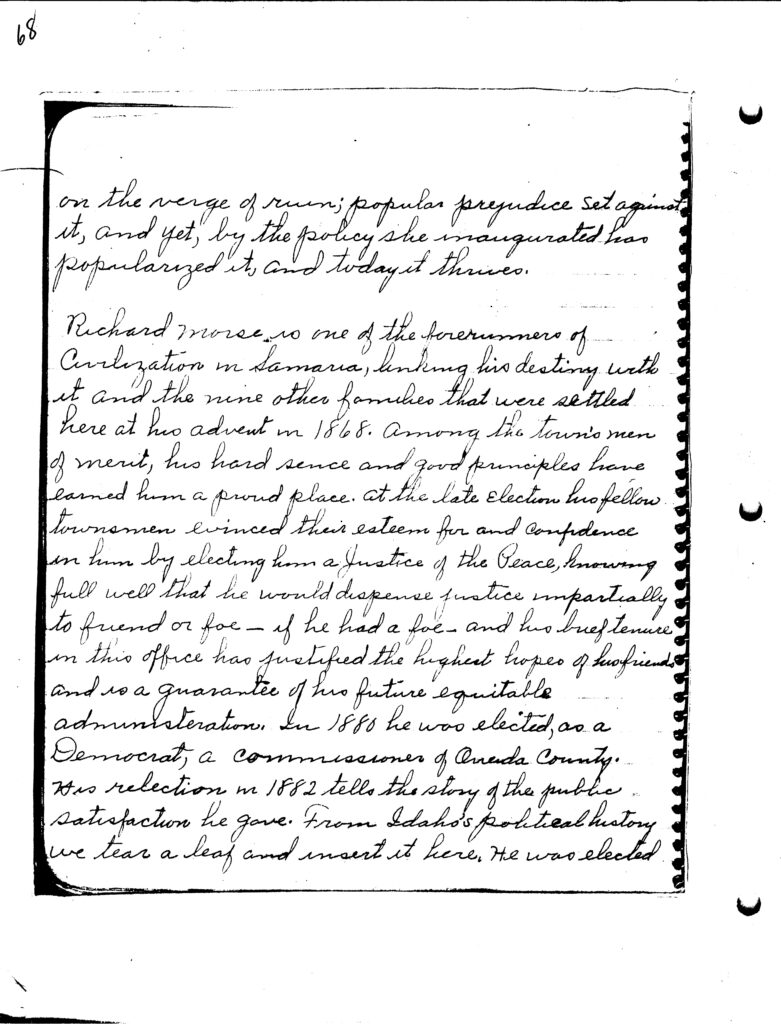 68
on the verge of ruin; popular prejudice set against
it, and yet, by the policy she inaugurated has
popularized it, and today it thrives.
Richard Morse is one of the forerunners of
Civilization in Samaria, linking his destiny with
it and the nine other families that were settled
here at his advent in 1868. Among the town's men
of merit, his hard sence and good principles have
earned him a proud place. At the late Election his fellow
townsmen evinced their esteem for and Confidence
in him by electing him a Justice of the Peace, knowing
full well that he would dispense justice impartially
to friend or foe - if he had a foe - and his brief tenure
in this office has justified the highest hopes of his friends
and is a guarantee of his future equitable
administeration. In 1880 he was elected, as a
Democrat, a Commissioner of Oneida County.
His relection in 1882 tells the story of the public
satisfaction he gave. From Idaho's political history
we tear a leaf and insert it here. He was elected